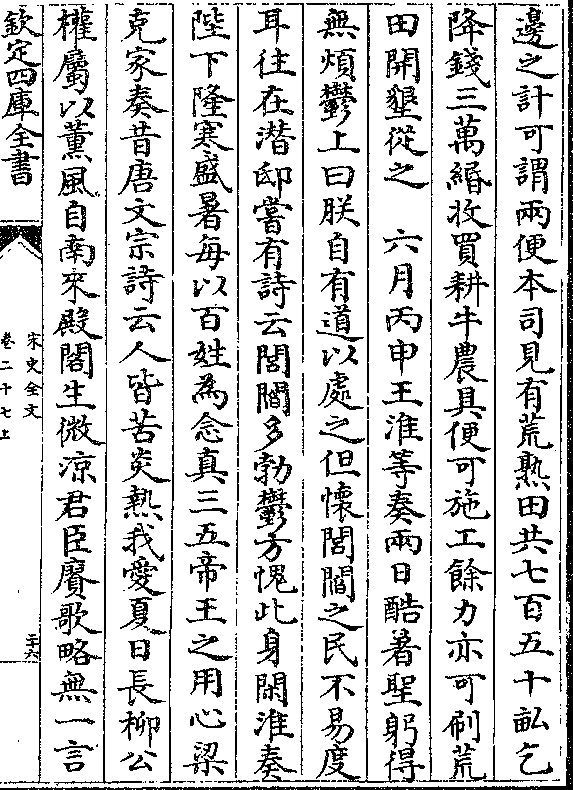 邊之計可謂兩便本司見有荒熟田共七百五十畆乞
降錢三萬緡收買耕牛農具便可施工餘力亦可刷荒
田開墾從之　六月丙申王淮等奏兩日酷暑聖躬得
無煩鬱上曰朕自有道以處之但懷閭閻之民不易度
耳往在潛邸嘗有詩云閭閻多勃鬱方愧此身閑淮奏
陛下隆寒盛暑每以百姓為念真三五帝王之用心梁
克家奏昔唐文宗詩云人皆苦炎熱我愛夏日長柳公
權屬以薰風自南來殿閣生微凉君臣賡歌略無一言
欽定四庫全書
宋史全文
卷二十七上
三六